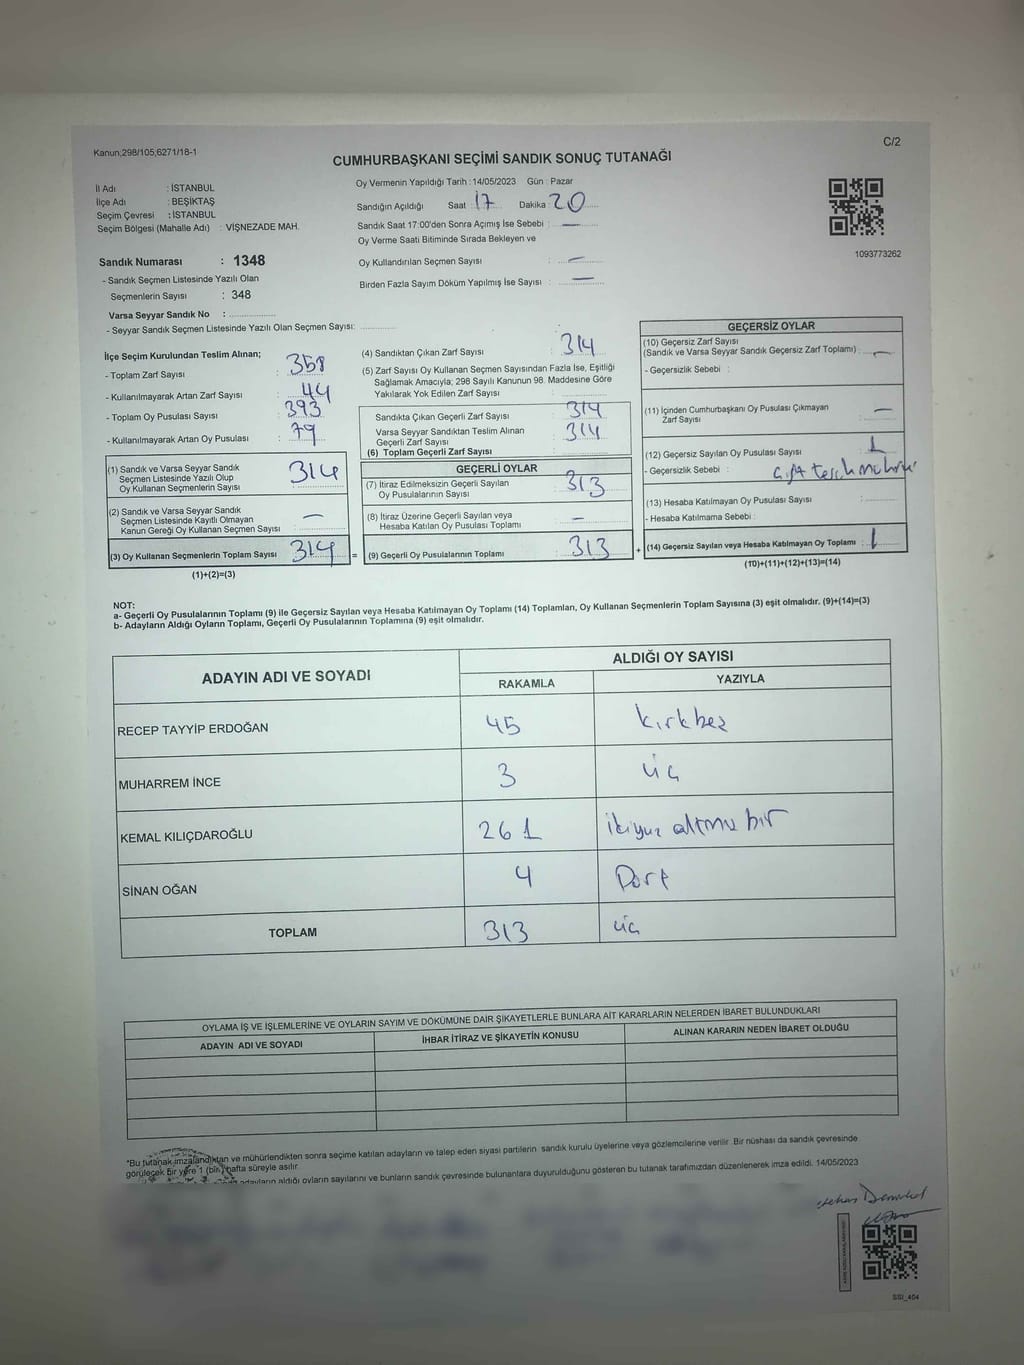 Kanun;298/105;6271/18-1
C/2
CUMHURBAŞKANI SEÇİMİ SANDIK SONUÇ TUTANAĞI
İl Adı : İSTANBUL
İlçe Adı : BEŞİKTAŞ
Seçim Çevresi : İSTANBUL
Seçim Bölgesi (Mahalle Adı) : VİŞNEZADE MAH.
Sandık Numarası : 1348
- Sandık Seçmen Listesinde Yazılı Olan
Seçmenlerin Sayısı : 348
Varsa Seyyar Sandık No :
- Seyyar Sandık Seçmen Listesinde Yazılı Olan Seçmen Sayısı:
Oy Vermenin Yapıldığı Tarih : 14/05/2023 Gün : Pazar
Sandığın Açıldığı Saat : 17 Dakika : 20
Sandık Saat 17:00'den Sonra Açımış İse Sebebi : —
Oy Verme Saati Bitiminde Sırada Bekleyen ve
Oy Kullandırılan Seçmen Sayısı : —
Birden Fazla Sayım Döküm Yapılmış İse Sayısı : —
1093773262
İlçe Seçim Kurulundan Teslim Alınan;
- Toplam Zarf Sayısı : 358
- Kullanılmayarak Artan Zarf Sayısı : 44
- Toplam Oy Pusulası Sayısı : 393
- Kullanılmayarak Artan Oy Pusulası : 79
(1) Sandık ve Varsa Seyyar Sandık
Seçmen Listesinde Yazılı Olup
Oy Kullanan Seçmenlerin Sayısı 314
(2) Sandık ve Varsa Seyyar Sandık
Seçmen Listesinde Kayıtlı Olmayan
Kanun Gereği Oy Kullanan Seçmen Sayısı —
(3) Oy Kullanan Seçmenlerin Toplam Sayısı 314 =
(1)+(2)=(3)
(4) Sandıktan Çıkan Zarf Sayısı : 314
(5) Zarf Sayısı Oy Kullanan Seçmen Sayısından Fazla İse, Eşitliği
Sağlamak Amacıyla; 298 Sayılı Kanunun 98. Maddesine Göre
Yakılarak Yok Edilen Zarf Sayısı :
Sandıkta Çıkan Geçerli Zarf Sayısı : 314
Varsa Seyyar Sandıktan Teslim Alınan
Geçerli Zarf Sayısı : 314
(6) Toplam Geçerli Zarf Sayısı :
GEÇERLİ OYLAR
(7) İtiraz Edilmeksizin Geçerli Sayılan
Oy Pusulalarının Sayısı : 313
(8) İtiraz Üzerine Geçerli Sayılan veya
Hesaba Katılan Oy Pusulası Toplamı : —
(9) Geçerli Oy Pusulalarının Toplamı : 313 +
GEÇERSİZ OYLAR
(10) Geçersiz Zarf Sayısı
(Sandık ve Varsa Seyyar Sandık Geçersiz Zarf Toplamı) : —
- Geçersizlik Sebebi :
(11) İçinden Cumhurbaşkanı Oy Pusulası Çıkmayan
Zarf Sayısı : —
(12) Geçersiz Sayılan Oy Pusulası Sayısı : 1
- Geçersizlik Sebebi :
(13) Hesaba Katılmayan Oy Pusulası Sayısı :
- Hesaba Katılmama Sebebi :
(14) Geçersiz Sayılan veya Hesaba Katılmayan Oy Toplamı : 1
(10)+(11)+(12)+(13)=(14)
NOT:
a- Geçerli Oy Pusulalarının Toplamı (9) ile Geçersiz Sayılan veya Hesaba Katılmayan Oy Toplamı (14) Toplamları, Oy Kullanan Seçmenlerin Toplam Sayısına (3) eşit olmalıdır. (9)+(14)=(3)
b- Adayların Aldığı Oyların Toplamı, Geçerli Oy Pusulalarının Toplamına (9) eşit olmalıdır.
ADAYIN ADI VE SOYADI ALDIĞI OY SAYISI
RAKAMLA YAZIYLA
RECEP TAYYİP ERDOĞAN 45 kırkbeş
MUHARREM İNCE 3 üç
KEMAL KILIÇDAROĞLU 261 ikiyüz altmış bir
SİNAN OĞAN 4 Dört
TOPLAM 313 üç
OYLAMA İŞ VE İŞLEMLERİNE VE OYLARIN SAYIM VE DÖKÜMÜNE DAİR ŞİKAYETLERLE BUNLARA AİT KARARLARIN NELERDEN İBARET BULUNDUKLARI
ADAYIN ADI VE SOYADI İHBAR İTİRAZ VE ŞİKAYETİN KONUSU ALINAN KARARIN NEDEN İBARET OLDUĞU
*Bu tutanak imzalandıktan ve mühürlendikten sonra seçime katılan adayların ve talep eden siyasi partilerin sandık kurulu üyelerine veya gözlemcilerine verilir. Bir nüshası da sandık çevresinde
görülecek bir yere 1 (bir) hafta süreyle asılır.
adayların aldığı oyların sayılarını ve bunların sandık çevresinde bulunanlara duyurulduğunu gösteren bu tutanak tarafımızdan düzenlenerek imza edildi. 14/05/2023
SSI_404